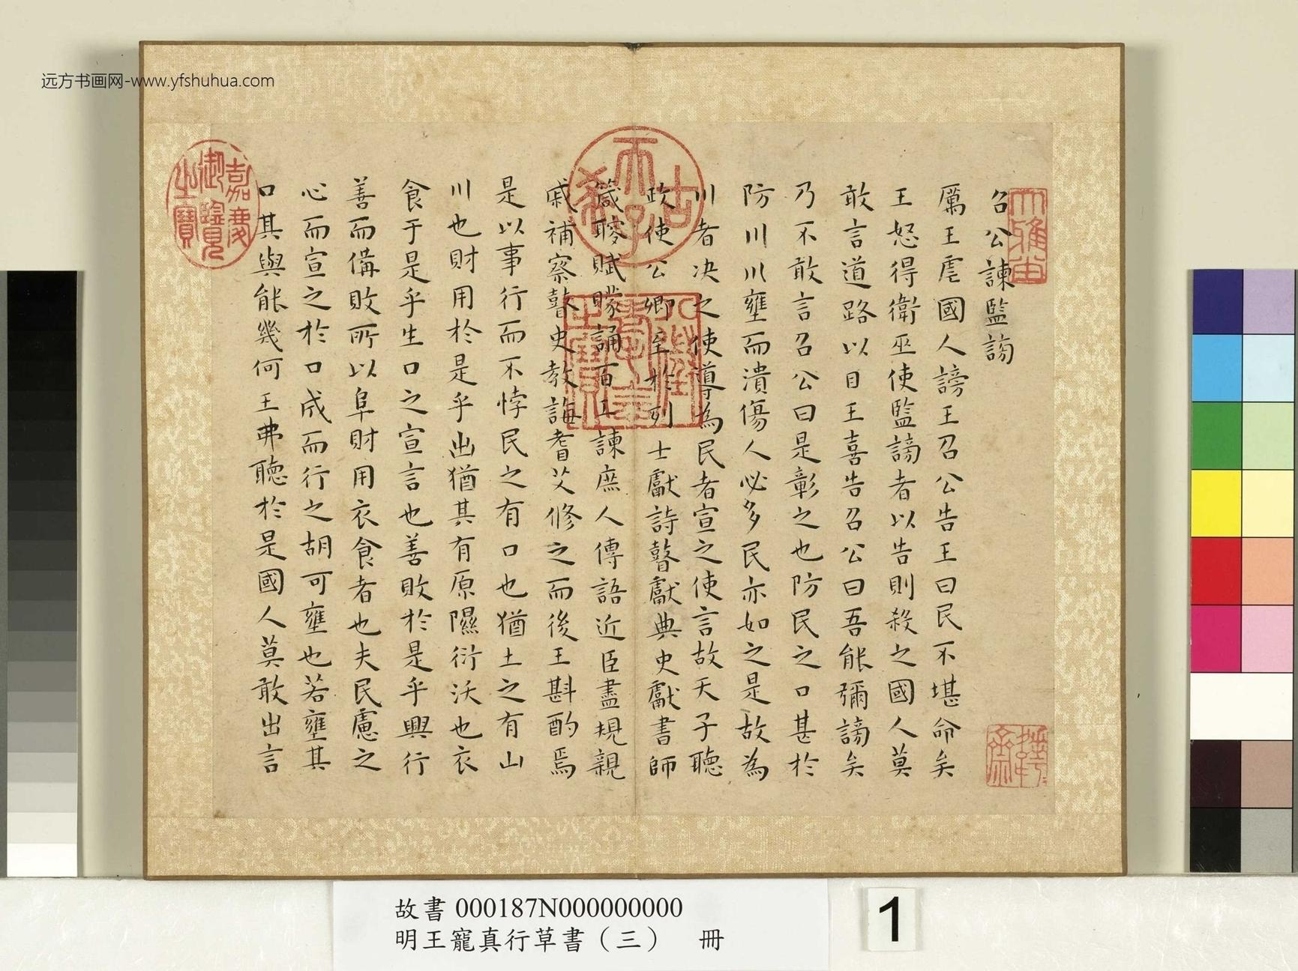 远方书画网-www.yfshuhua.com
召公諫監謗
厲王虐國人謗王召公告王曰民不堪命矣
王怒得衛巫使監謗者以告則殺之國人莫
敢言道路以目王喜告召公曰吾能彌謗矣
乃不敢言召公曰是彰之也防民之口甚於
防川川壅而潰傷人必多民亦如之是故為
川者决之使導為民者宣之使言故天子聽
政使公卿至於列士獻詩瞽獻典史獻書師
箴瞍賦矇誦百工諫庶人傳語近臣盡規親
戚補察瞽史教誨耆艾修之而後王斟酌焉
是以事行而不悖民之有口也猶土之有山
川也財用於是乎出猶其有原隰衍沃也衣
食于是乎生口之宣言也善敗於是乎興行
善而備敗所以阜財用衣食者也夫民慮之
心而宣之於口成而行之胡可壅也若壅其
口其與能幾何王弗聽於是國人莫敢出言
古希天子
八徵耄念之寶
嘉慶御覽之寶
故書 000187N000000000
明王寵真行草書（三） 冊
1